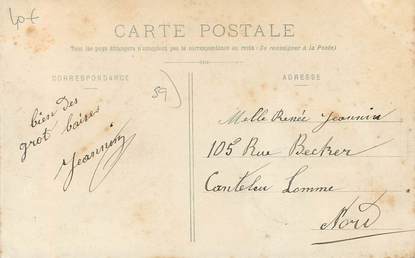 40€
CARTE POSTALE
Tous les pays étrangers n'acceptent pas la correspondance au recto (Se renseigner à la Poste)
CORRESPONDANCE
ADRESSE
59)
bien des
gros baisers
Jeannin
Melle Renée Jeannin
105 Rue Becker
Canteleu Lomme
Nord